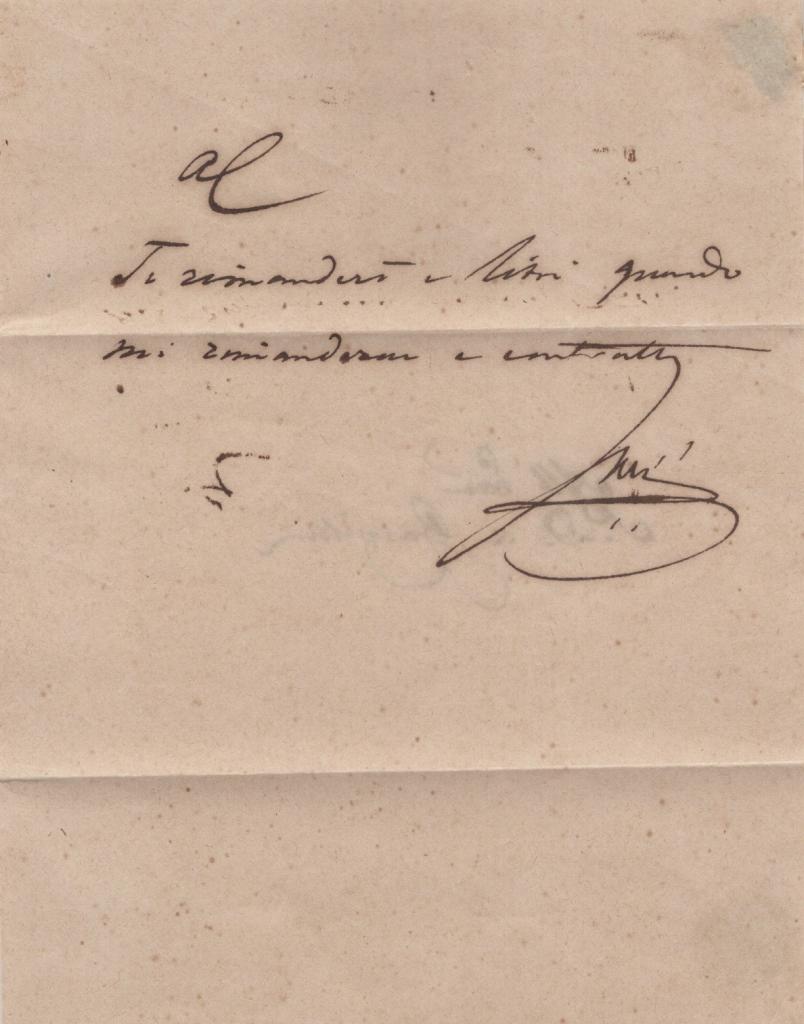 AC
Ti rimanderò e libri quando
mi rimanderai e contratti